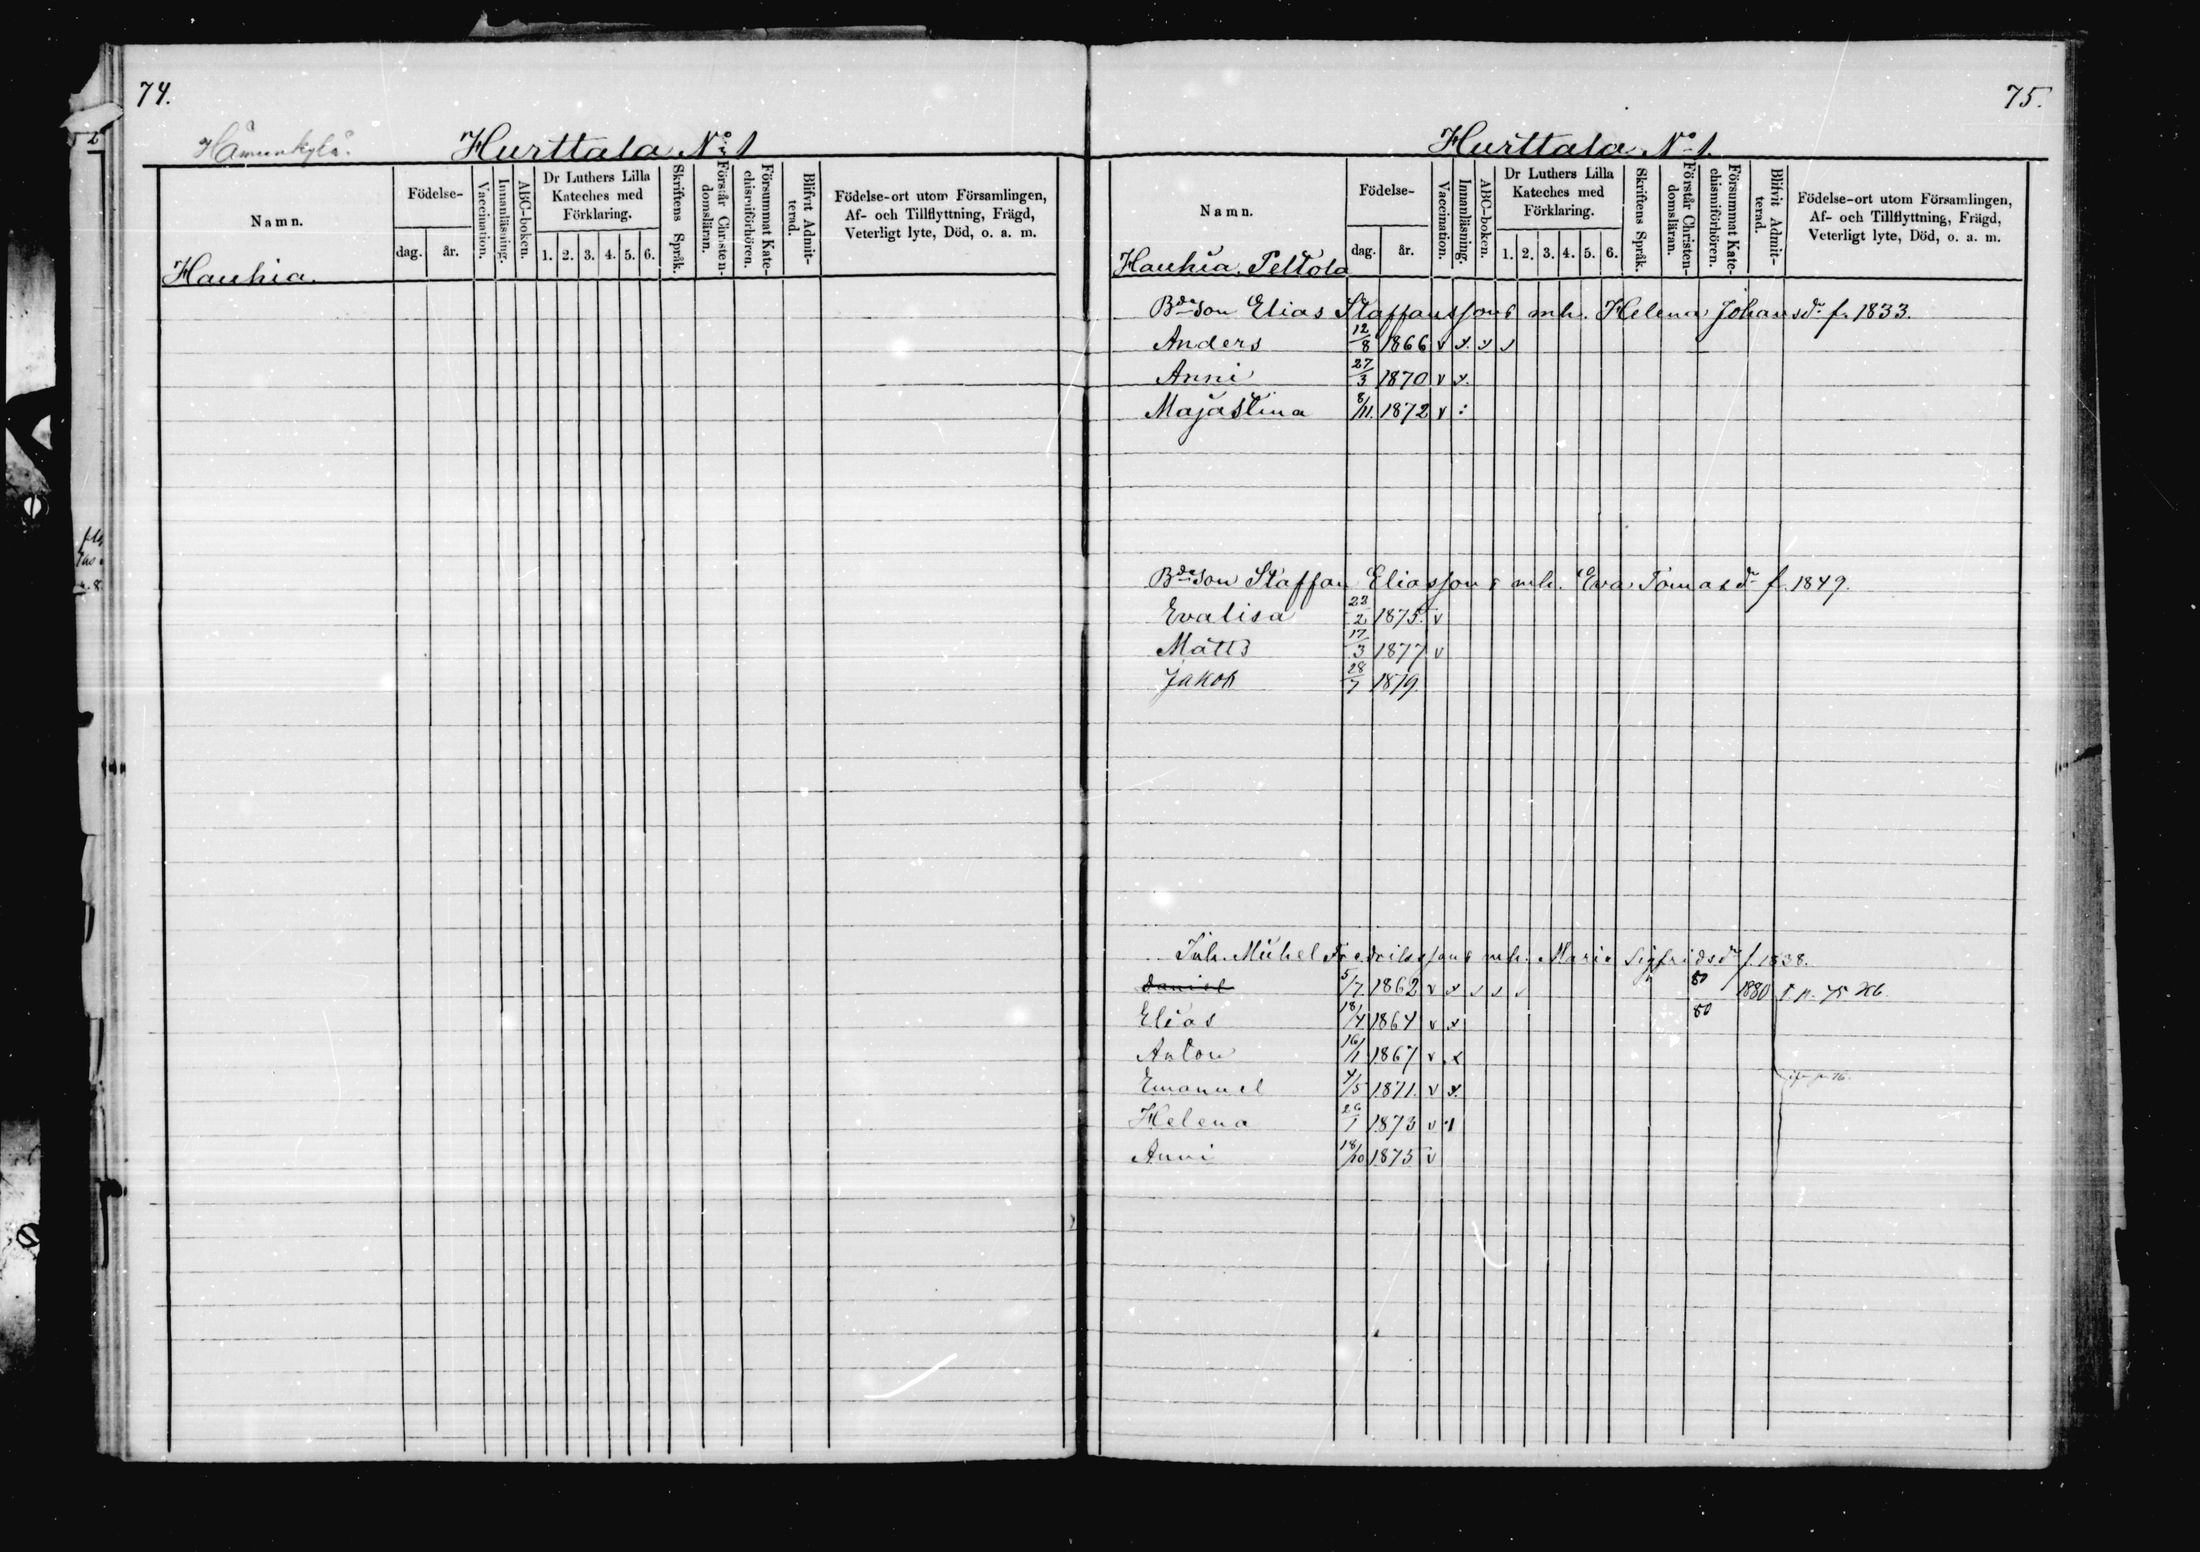 74.
Hämeenkylä.
Hurttala No 1
Namn.
Födelse-
dag.
år.
Vaccination.
Innanläsning.
ABC-boken.
Dr Luthers Lilla
Kateches med
Förklaring.
1. 2. 3. 4. 5. 6.
Skriftens Språk.
Förstår Christen-
domsläran.
Försummat Kate-
chismiförhören.
Blifvit Admit-
terad.
Födelse-ort utom Församlingen,
Af- och Tillflyttning, Frägd,
Veterligt lyte, Död, o. a. m.
Hauhia.
75.
Hurttala No 1.
Namn.
Födelse-
dag.
år.
Vaccination.
Innanläsning.
ABC-boken.
Dr Luthers Lilla
Kateches med
Förklaring.
1. 2. 3. 4. 5. 6.
Skriftens Språk.
Förstår Christen-
domsläran.
Försummat Kate-
chismiförhören.
Blifvit Admit-
terad.
Födelse-ort utom Församlingen,
Af- och Tillflyttning, Frägd,
Veterligt lyte, Död, o. a. m.
Hauhia. Peltola
Bdeson Elias Staffansson & mh. Helena Johansdr f. 1833.
Anders 12/8 1866 v x x x
Anni 27/3 1870 v x.
Majastina 8/11. 1872 v :
Bdeson Staffan Eliasson & mh. Eva Tomasdr f. 1849.
Evalisa 23/2 1875. v
Matts 17/3 1877 v
Jakob 28/7 1879.
Inh. Mickel Fredriksson & mh. Maria Sigfridsdr f. 1838.
Daniel 5/7 1862 v x 80 1880
Elias 18/4 1864 v x 80
Anton 16/1 1867 v x
Emanuel 4/5 1871. v x.
Helena 26/1 1873 v
Anni 18/10 1875 v